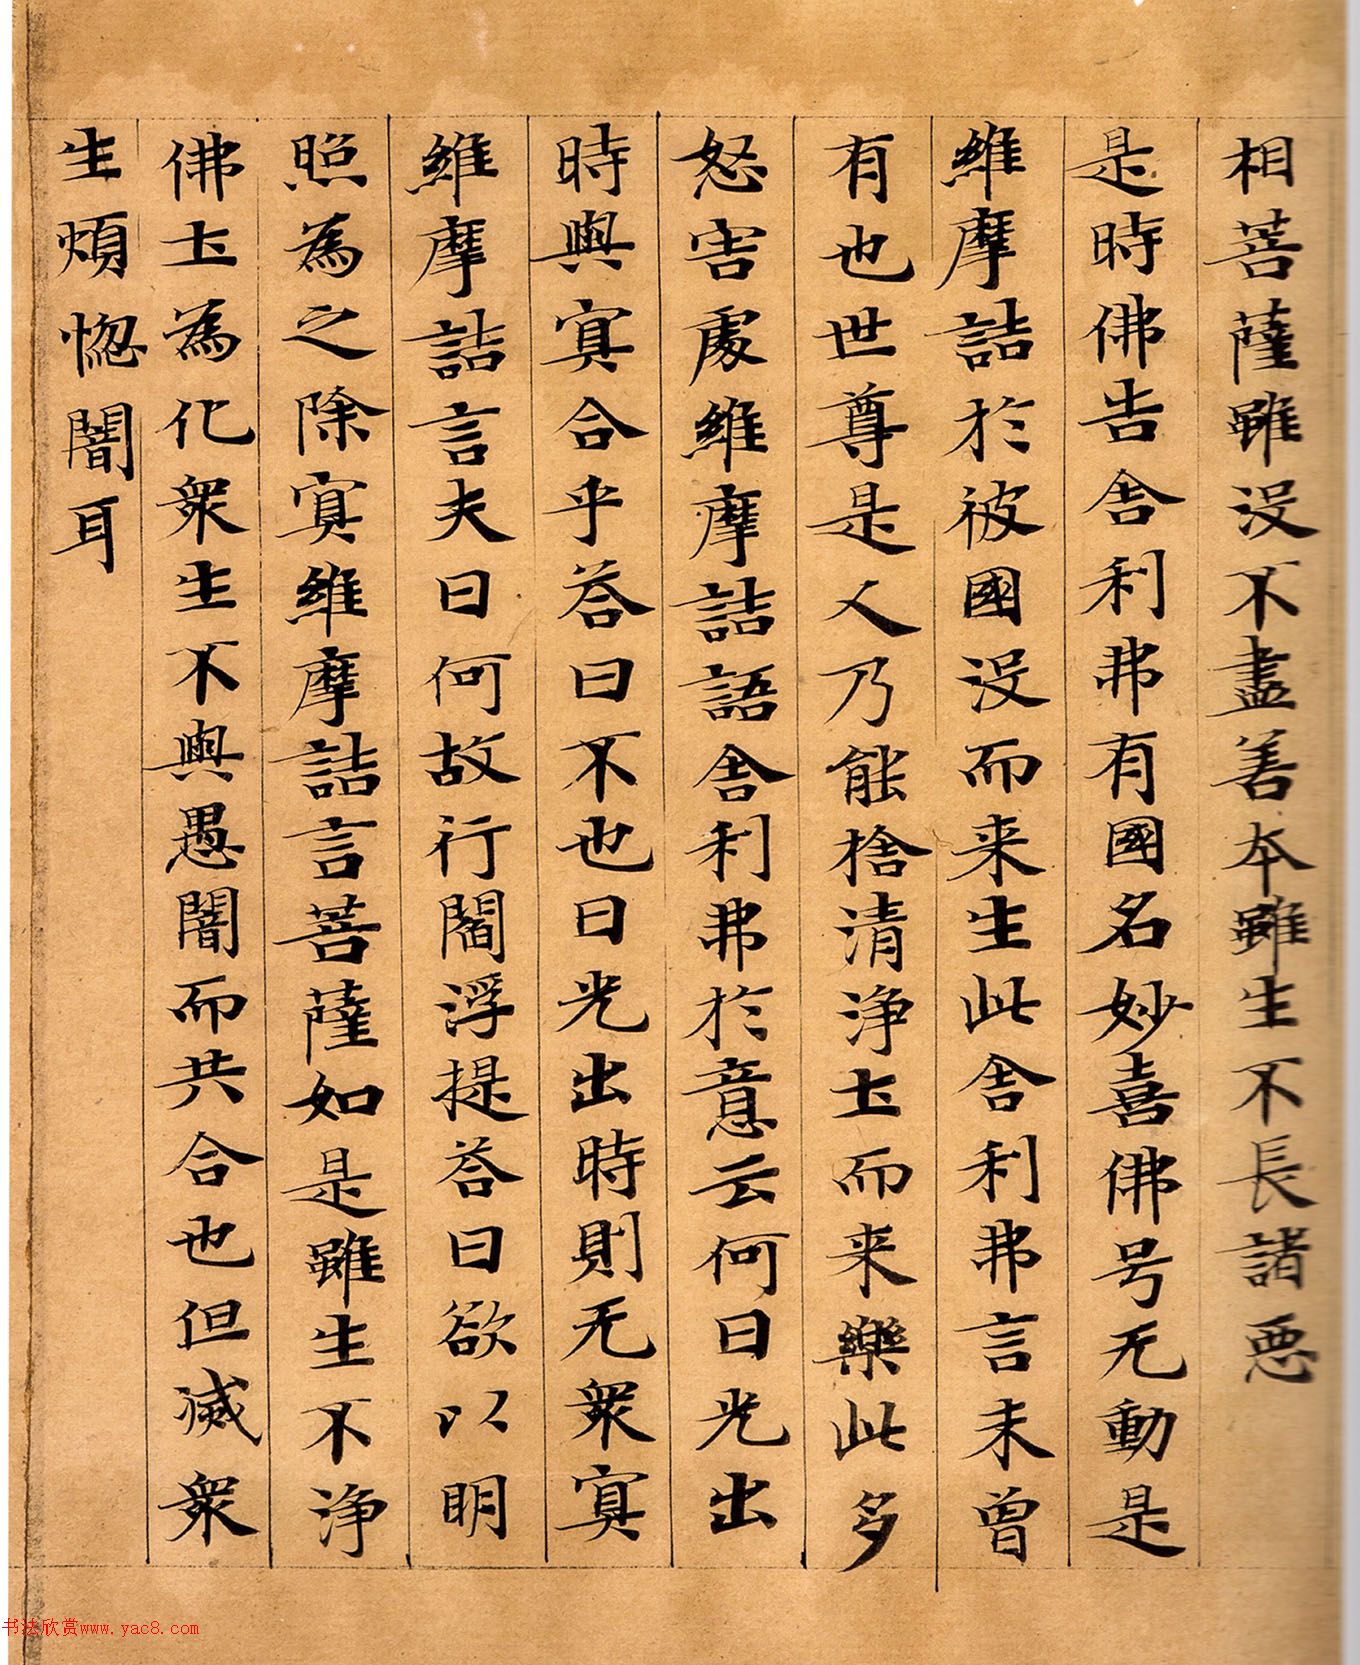 相菩薩雖没不盡善本雖生不長諸惡
是時佛告舍利弗有國名妙喜佛号无動是
維摩詰於彼國没而来生此舍利弗言未曾
有也世尊是人乃能捨清淨土而来樂此多
怒害處維摩詰語舍利弗於意云何日光出
時與冥合乎荅曰不也日光出時則无衆冥
維摩詰言夫日何故行閻浮提荅曰欲以明
照為之除冥維摩詰言菩薩如是雖生不淨
佛土為化衆生不與愚闇而共合也但滅衆
生煩惚闇耳
书法欣赏www.yac8.com